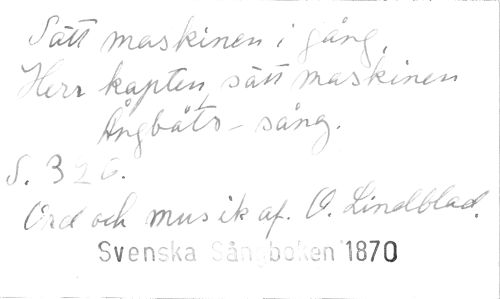 Sätt maskinen i gång,
Herr kapten, sätt maskinen
Ångbåts-sång.
S. 320.
Ord och musik af. O. Lindblad.
Svenska Sångboken 1870